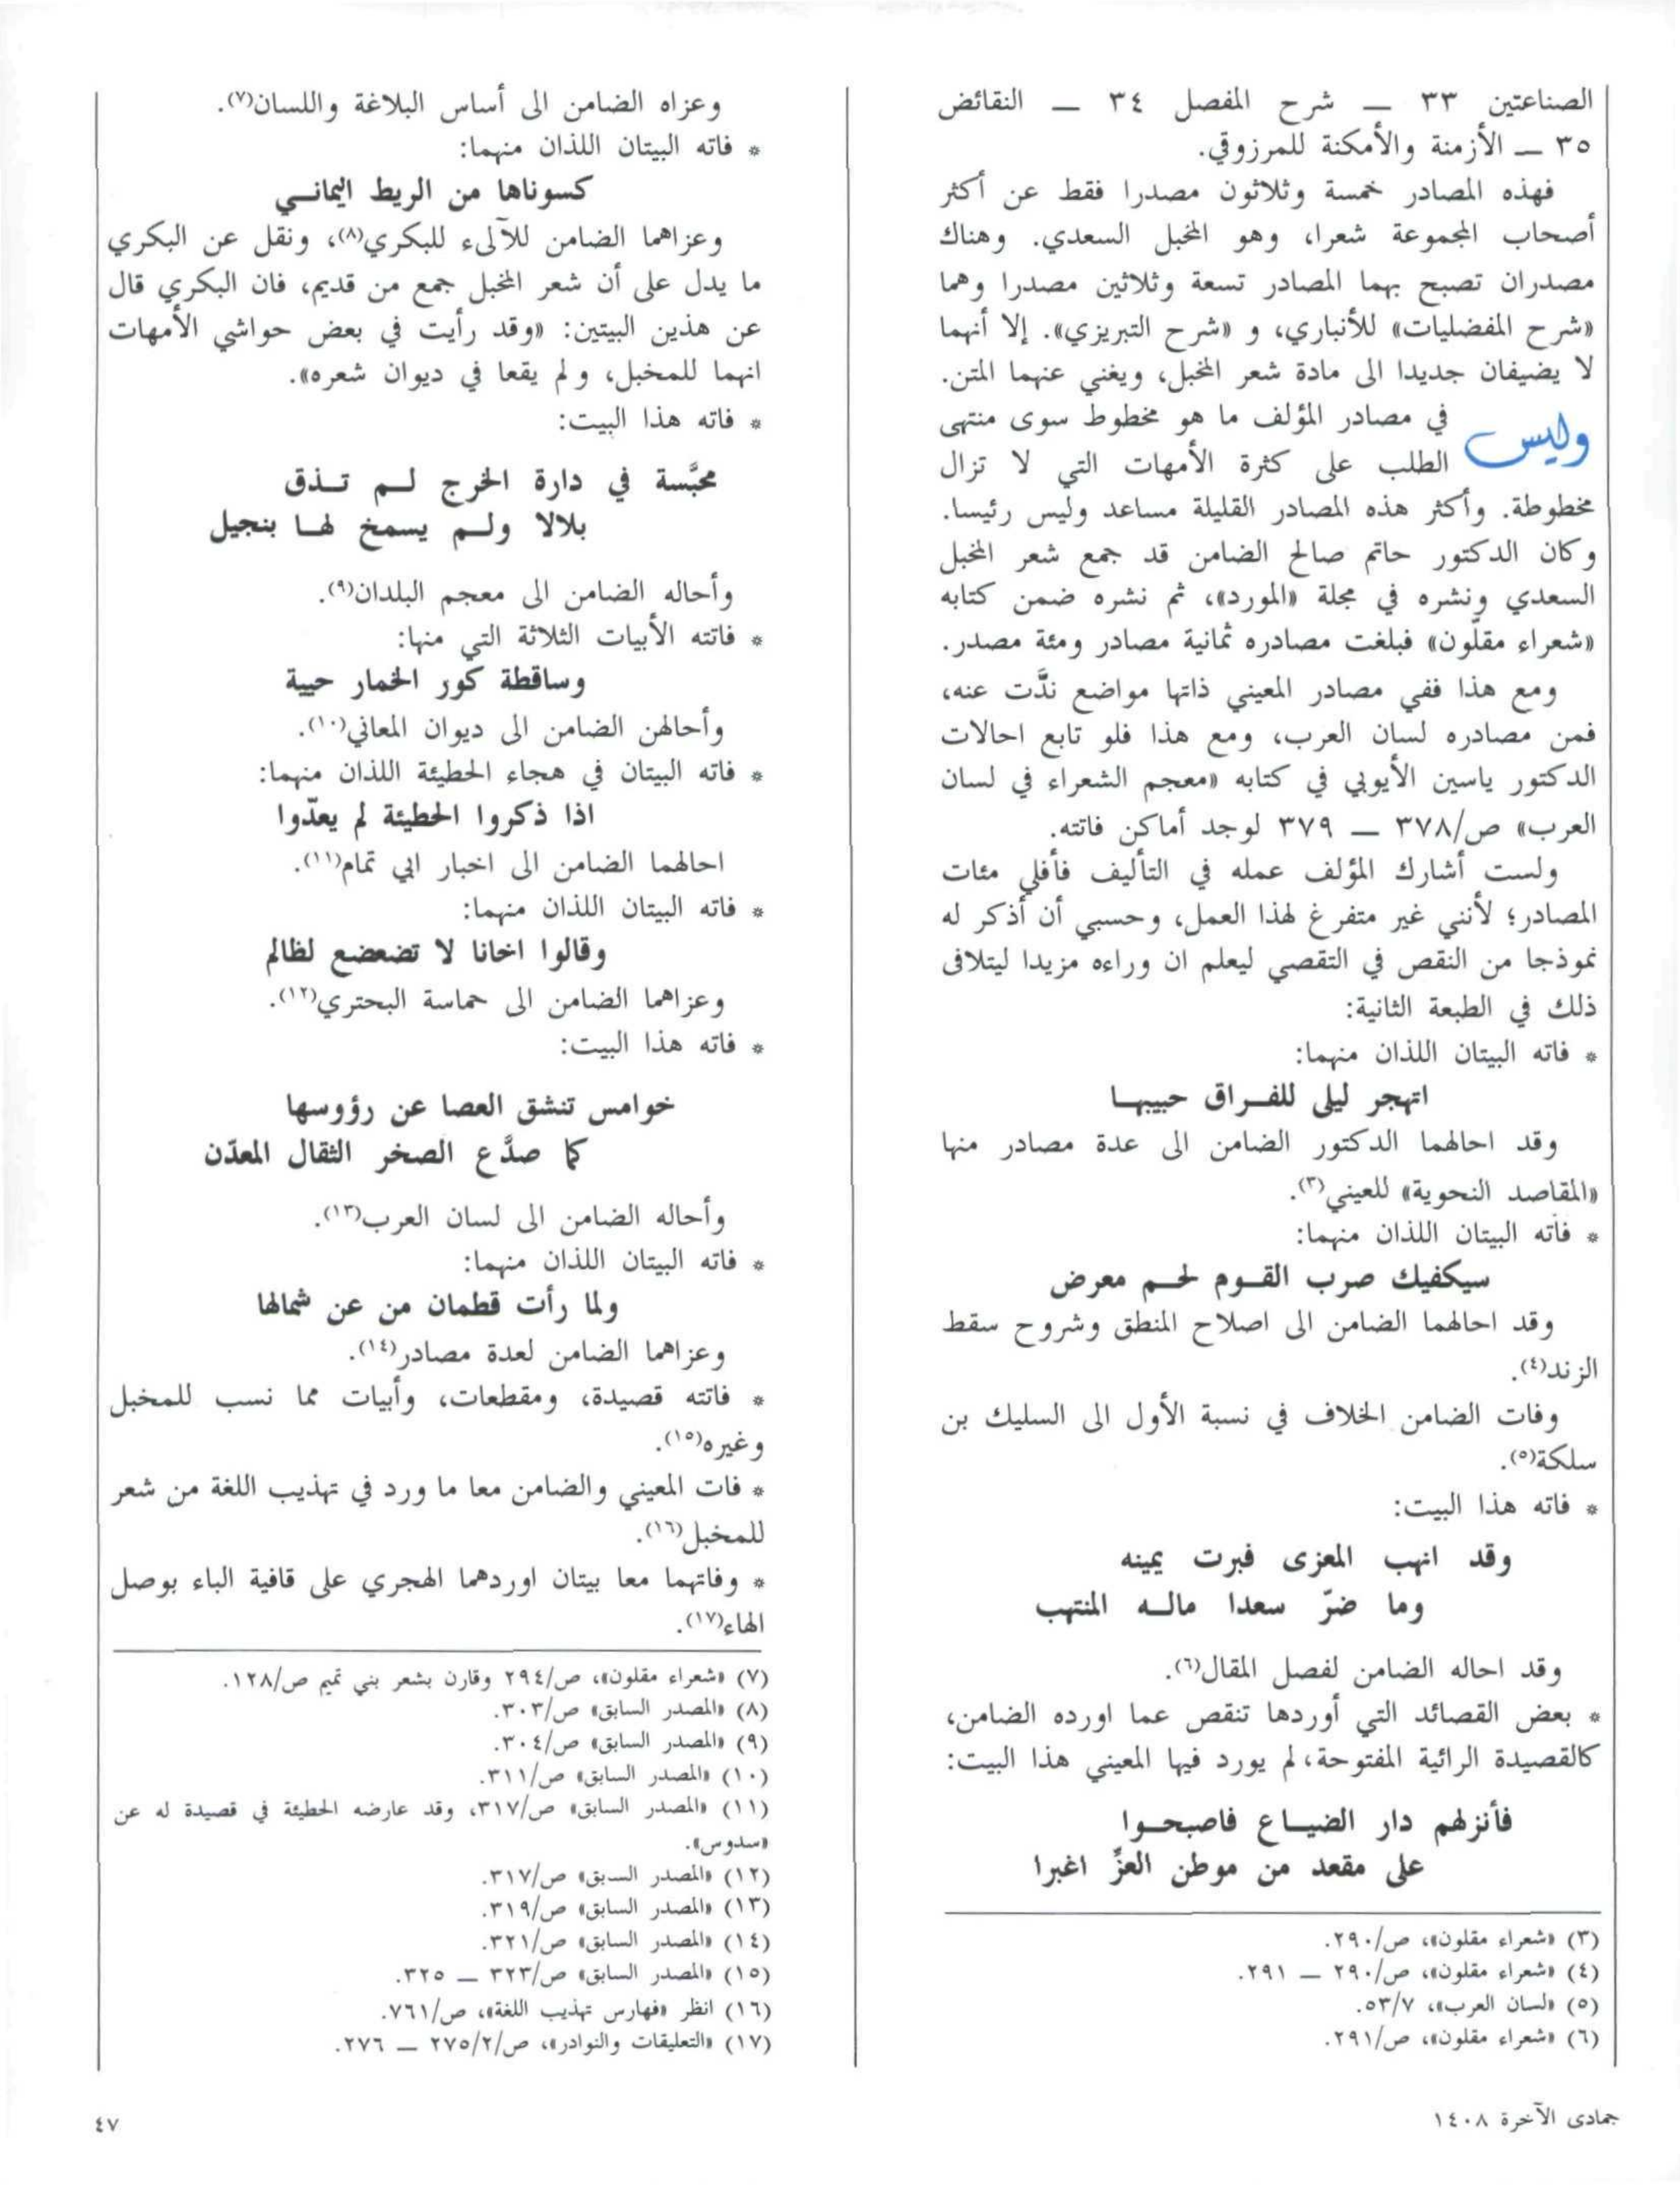 الصناعتين ٣٣ — شرح المفصل ٣٤ — النقائض
٣٥ — الأزمنة والأمكنة للمرزوقي.
فهذه المصادر خمسة وثلاثون مصدرا فقط عن أكثر
أصحاب المجموعة شعرا، وهو المخبل السعدي. وهناك
مصدران تصبح بهما المصادر تسعة وثلاثين مصدرا وهما
«شرح المفضليات» للأنباري، و «شرح التبريزي». إلا أنهما
لا يضيفان جديدا الى مادة شعر المخبل، ويغني عنهما المتن.
وليس في مصادر المؤلف ما هو مخطوط سوى منتهى
الطلب على كثرة الأمهات التي لا تزال
مخطوطة. وأكثر هذه المصادر القليلة مساعد وليس رئيسا.
وكان الدكتور حاتم صالح الضامن قد جمع شعر المخبل
السعدي ونشره في مجلة «المورد»، ثم نشره ضمن كتابه
«شعراء مقلّون» فبلغت مصادره ثمانية مصادر ومئة مصدر.
ومع هذا ففي مصادر المعيني ذاتها مواضع ندَّت عنه،
فمن مصادره لسان العرب، ومع هذا فلو تابع احالات
الدكتور ياسين الأيوبي في كتابه «معجم الشعراء في لسان
العرب» ص/٣٧٨ — ٣٧٩ لوجد أماكن فاتته.
ولست أشارك المؤلف عمله في التأليف فأفلي مئات
المصادر؛ لأنني غير متفرغ لهذا العمل، وحسبي أن أذكر له
نموذجا من النقص في التقصي ليعلم ان وراءه مزيدا ليتلافى
ذلك في الطبعة الثانية:
* فاته البيتان اللذان منهما:
اتهجر ليلى للفـراق حبيبهـا
وقد احالهما الدكتور الضامن الى عدة مصادر منها
«المقاصد النحوية» للعيني(٣).
* فاته البيتان اللذان منهما:
سيكفيك صرب القـوم لحـم معرض
وقد احالهما الضامن الى اصلاح المنطق وشروح سقط
الزند(٤).
وفات الضامن الخلاف في نسبة الأول الى السليك بن
سلكة(٥).
* فاته هذا البيت:
وقد انهب المعزى فبرت يمينه
وما ضرّ سعدا مالـه المنتهب
وقد احاله الضامن لفصل المقال(٦).
* بعض القصائد التي أوردها تنقص عما اورده الضامن،
كالقصيدة الرائية المفتوحة، لم يورد فيها المعيني هذا البيت:
فأنزلهم دار الضيـاع فاصبحـوا
على مقعد من موطن العزِّ اغبرا
(٣) «شعراء مقلون»، ص/٢٩٠.
(٤) «شعراء مقلون»، ص/٢٩٠ — ٢٩١.
(٥) «لسان العرب»، ٥٣/٧.
(٦) «شعراء مقلون»، ص/٢٩١.
وعزاه الضامن الى أساس البلاغة واللسان(٧).
* فاته البيتان اللذان منهما:
كسوناها من الريط اليمانـي
وعزاهما الضامن للآلىء للبكري(٨)، ونقل عن البكري
ما يدل على أن شعر المخبل جمع من قديم، فان البكري قال
عن هذين البيتين: «وقد رأيت في بعض حواشي الأمهات
انهما للمخبل، ولم يقعا في ديوان شعره».
* فاته هذا البيت:
محبَّسة في دارة الخرج لـم تـذق
بلالا ولـم يسمخ لهـا بنجيل
وأحاله الضامن الى معجم البلدان(٩).
* فاتته الأبيات الثلاثة التي منها:
وساقطة كور الخمار حيية
وأحالهن الضامن الى ديوان المعاني(١٠).
* فاته البيتان في هجاء الحطيئة اللذان منهما:
اذا ذكروا الحطيئة لم يعدّوا
احالهما الضامن الى اخبار ابي تمام(١١).
* فاته البيتان اللذان منهما:
وقالوا اخانا لا تضعضع لظالم
وعزاهما الضامن الى حماسة البحتري(١٢).
* فاته هذا البيت:
خوامس تنشق العصا عن رؤوسها
كما صدَّع الصخر الثقال المعدّن
وأحاله الضامن الى لسان العرب(١٣).
* فاته البيتان اللذان منهما:
ولما رأت قطمان من عن شمالها
وعزاهما الضامن لعدة مصادر(١٤).
* فاتته قصيدة، ومقطعات، وأبيات مما نسب للمخبل
وغيره(١٥).
* فات المعيني والضامن معا ما ورد في تهذيب اللغة من شعر
للمخبل(١٦).
* وفاتهما معا بيتان اوردهما الهجري على قافية الباء بوصل
الهاء(١٧).
(٧) «شعراء مقلون»، ص/٢٩٤ وقارن بشعر بني تميم ص/١٢٨.
(٨) «المصدر السابق» ص/٣٠٣.
(٩) «المصدر السابق» ص/٣٠٤.
(١٠) «المصدر السابق» ص/٣١١.
(١١) «المصدر السابق» ص/٣١٧، وقد عارضه الحطيئة في قصيدة له عن
«سدوس».
(١٢) «المصدر السبق» ص/٣١٧.
(١٣) «المصدر السابق» ص/٣١٩.
(١٤) «المصدر السابق» ص/٣٢١.
(١٥) «المصدر السابق» ص/٣٢٣ — ٣٢٥.
(١٦) انظر «فهارس تهذيب اللغة»، ص/٧٦١.
(١٧) «التعليقات والنوادر»، ص/٢٧٥/٢ — ٢٧٦.
جمادى الآخرة ١٤٠٨
٤٧